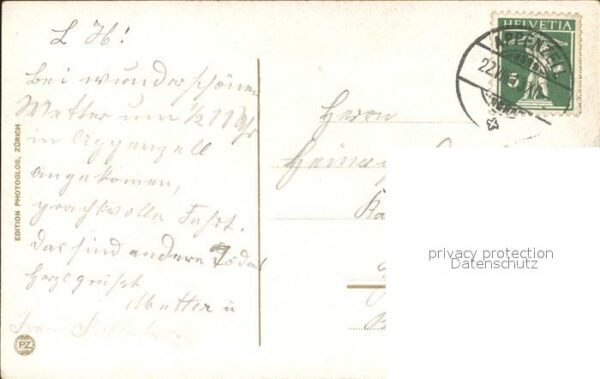 L H!
bei wunderschönen
Wetter um ½ 11 Uhr
in Appenzell
angekommen,
prachtvolle Fahrt.
Das sind andere
Herzl grüsst
Mutter u
EDITION PHOTOGLOB, ZÜRICH
PZ
HELVETIA
5
APPENZELL
Herrn
privacy protection
Datenschutz